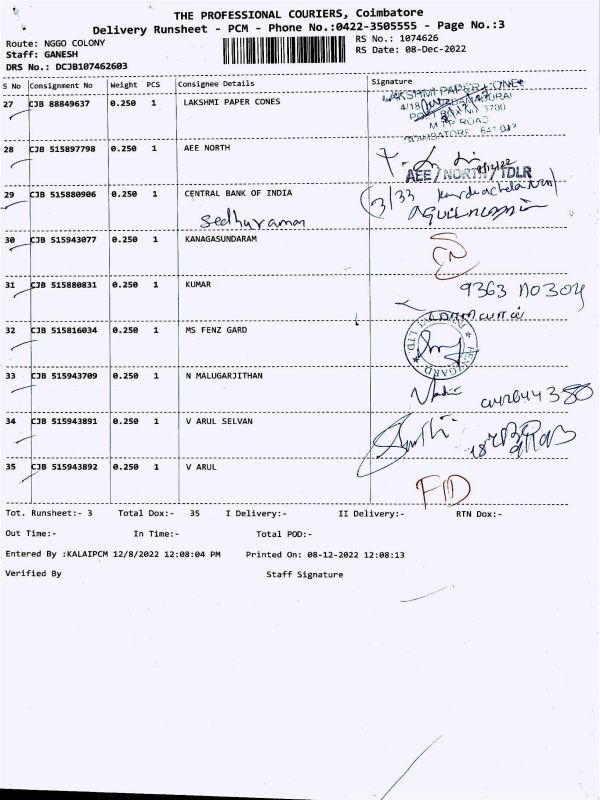 THE PROFESSIONAL COURIERS, Coimbatore
Delivery Runsheet - PCM - Phone No.:0422-3505555 - Page No.:3
Route: NGGO COLONY
RS No.: 1074626
Staff: GANESH
RS Date: 08-Dec-2022
DRS No.: DCJB107462603
S No Consignment No Weight PCS Consignee Details Signature
27 CJB 88849637 0.250 1 LAKSHMI PAPER CONES
LAKSHMI PAPER CONE
4/18
POST BOX NO 3700
M T P ROAD
COIMBATORE 641 017
28 CJB 515897798 0.250 1 AEE NORTH
AEE / NORTH / TDLR
29 CJB 515880906 0.250 1 CENTRAL BANK OF INDIA
3/33
Sedhuraman
30 CJB 515943077 0.250 1 KANAGASUNDARAM
31 CJB 515880831 0.250 1 KUMAR
32 CJB 515816034 0.250 1 MS FENZ GARD
33 CJB 515943709 0.250 1 N MALUGARJITHAN
34 CJB 515943891 0.250 1 V ARUL SELVAN
35 CJB 515943892 0.250 1 V ARUL
Tot. Runsheet:- 3 Total Dox:- 35 I Delivery:- II Delivery:- RTN Dox:-
Out Time:- In Time:- Total POD:-
Entered By :KALAIPCM 12/8/2022 12:08:04 PM Printed On: 08-12-2022 12:08:13
Verified By Staff Signature